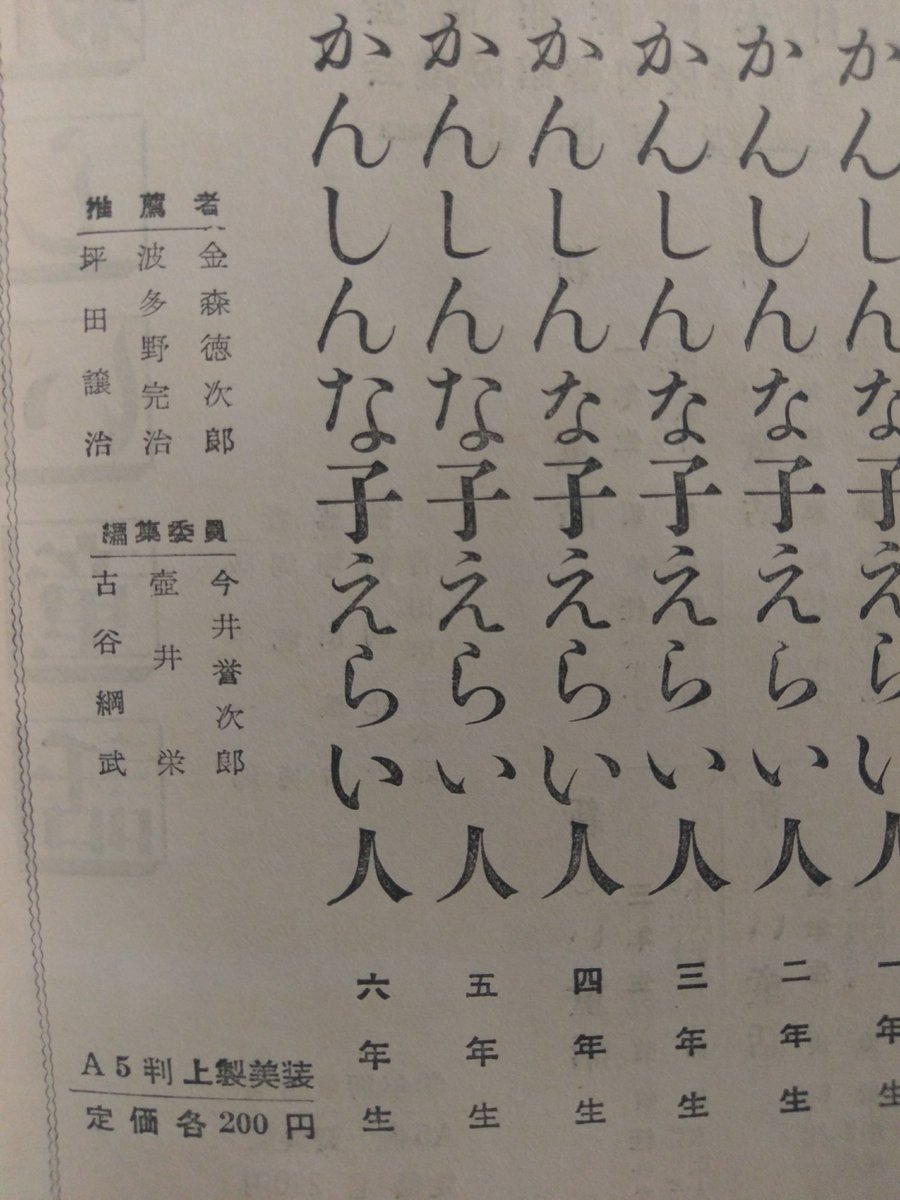 かんしんな子えらい人 一年生
かんしんな子えらい人 二年生
かんしんな子えらい人 三年生
かんしんな子えらい人 四年生
かんしんな子えらい人 五年生
かんしんな子えらい人 六年生
推薦者
金森徳次郎
波多野完治
坪田譲治
編集委員
今井誉次郎
壺井栄
古谷綱武
A5判上製美装
定価各200円